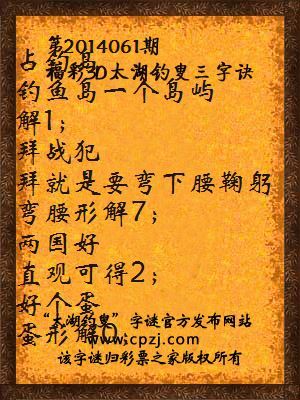 第2014061期
占钓岛
福彩3D太湖钓叟三字诀
钓鱼岛一个岛屿
解1；
拜战犯
拜就是要弯下腰鞠躬
弯腰形解7；
两国好
直观可得2；
好个蛋
“太湖钓叟”字谜官方发布网站
蛋形解0；
www.cpzj.com
该字谜归彩票之家版权所有